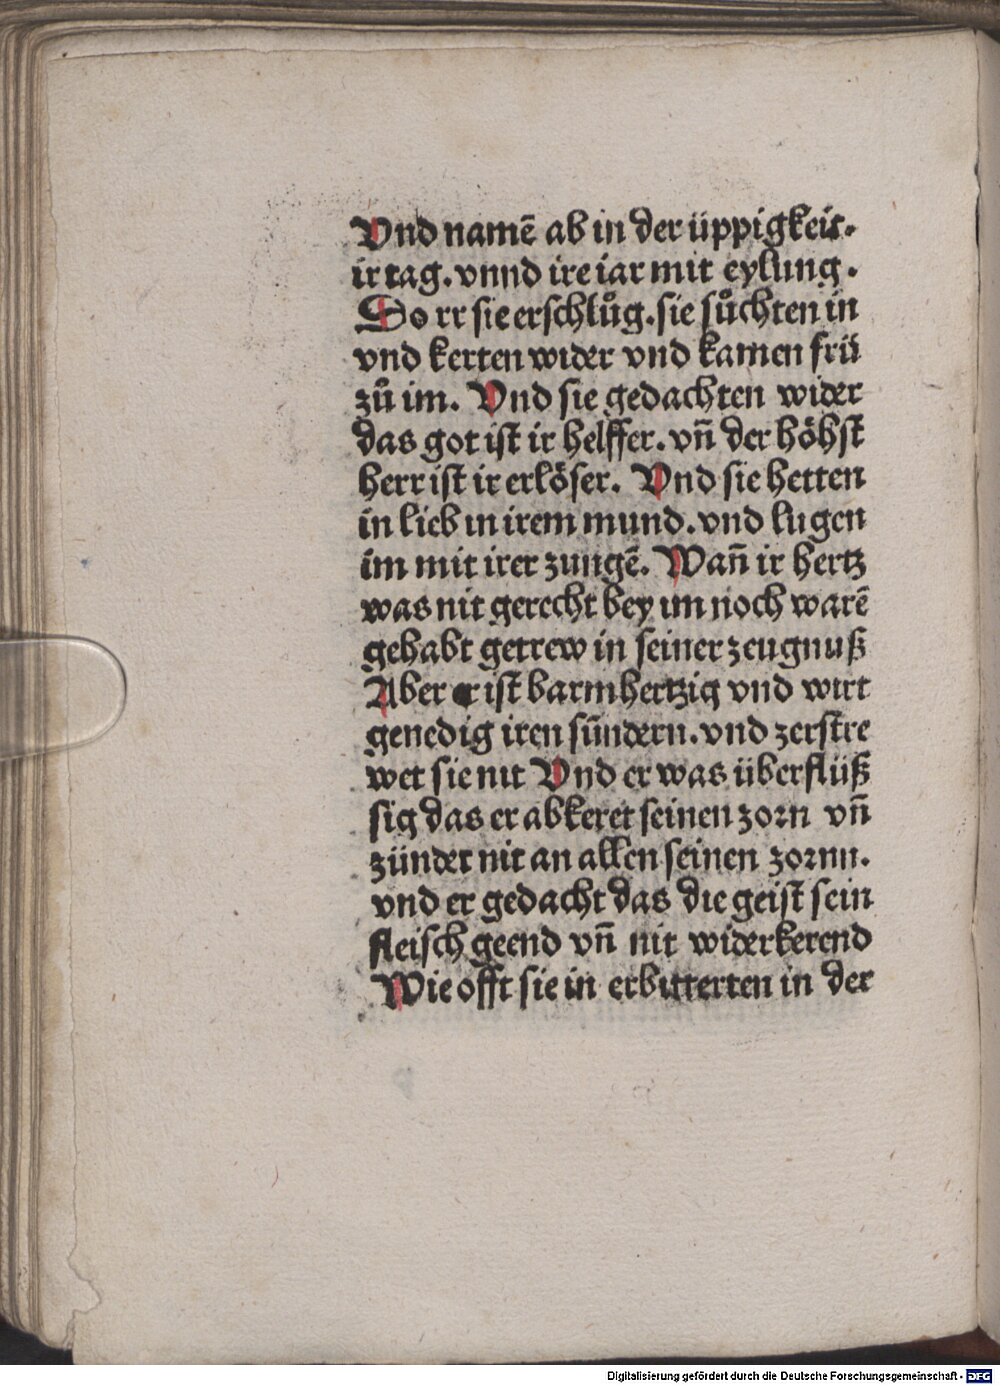 Vnd namē ab in der üppigkeit.
ir tag. vnnd ire iar mit eylung.
So rr sie erschlůg. sie sůchten in
vnd kerten wider vnd kamen frü
zů im. Vnd sie gedachten wider
das got ist ir helffer. vñ der höhst
herr ist ir erlöser. Vnd sie hetten
in lieb in irem mund. vnd lugen
im mit irer zungē. Wañ ir hertz
was nit gerecht bey im noch warē
gehabt getrew in seiner zeugnuß
Aber er ist barmhertzig vnd wirt
genedig iren sündern. vnd zerstre
wet sie nit Vnd er was überflüß
sig das er abkeret seinen zorn vñ
zündet nit an allen seinen zornn.
vnd er gedacht das die geist sein
fleisch geend vñ nit widerkerend
Wie offt sie in erbitterten in der
Digitalisierung gefördert durch die Deutsche Forschungsgemeinschaft - DFG